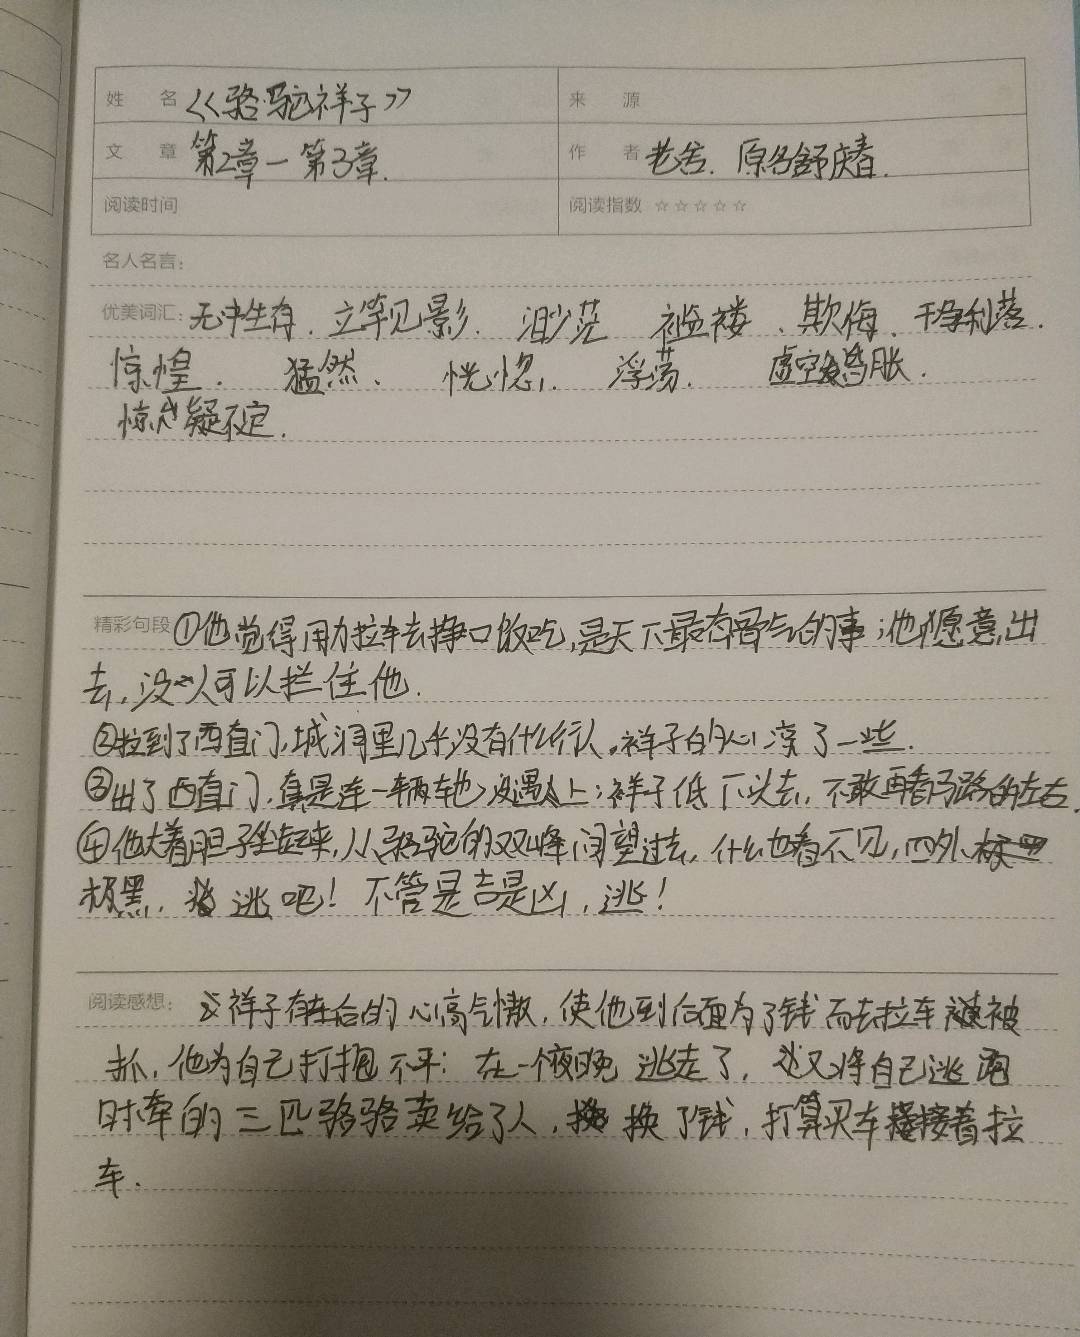 姓 名 《骆驼祥子》 来 源
文 章 第2章—第3章. 作 者 老舍. 原名舒庆春.
阅读时间 阅读指数 ☆☆☆☆☆
名人名言：
优美词汇：无中生有. 立竿见影. 渺茫 褴褛、欺侮. 干净利落.
惊惶. 猛然、 恍惚. 浮荡. 虚空肿胀.
惊疑不定.
精彩句段 ①他觉得用力拉车去挣口饭吃,是天下最有骨气的事;他愿意出
去,没人可以拦住他.
②拉到了西直门,城洞里几乎没有什么行人,祥子的心凉了一些.
③出了西直门,真是连一辆车也没遇上;祥子低下头去,不敢再看马路的左右.
④他大着胆子坐起来,从骆驼的双峰间望过去,什么也看不见,四外
极黑, 逃吧！不管是吉是凶,逃！
阅读感想： 祥子有车后的心高气傲,使他到后面为了钱而去拉车被
抓,他为自己打抱不平;在一个夜晚逃走了,又将自己逃跑
时牵的三匹骆骆卖给了人, 换了钱,打算买车接着拉
车.